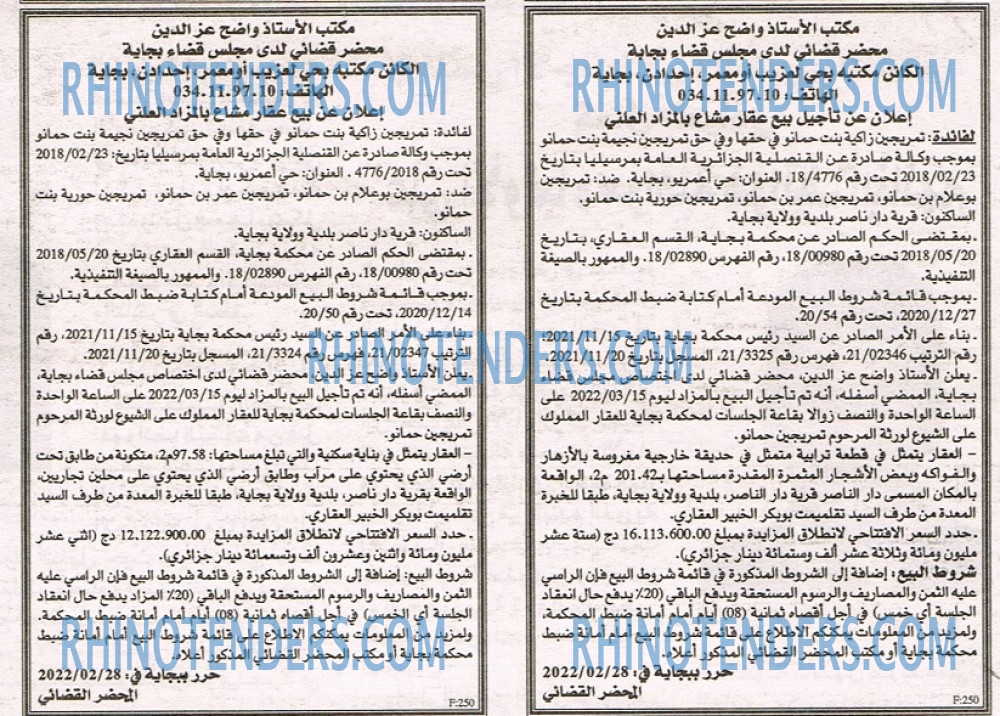 مكتب الأستاذ واضح عز الدين
محضر قضائي لدى مجلس قضاء بجاية
الكائن مكتبه بحي لعزيب أومعمر، إحدادن، بجاية
الهاتف: 034.11.97.10
إعلان عن تأجيل بيع عقار مشاع بالمزاد العلني
لفائدة: تمريجين زاكية بنت حمانو في حقها وفي حق تمريجين نجيمة بنت حمانو
بموجب وكالة صادرة عن القنصلية الجزائرية العامة بمرسيليا بتاريخ
2018/02/23 تحت رقم 18/4776. العنوان: حي أعمريو، بجاية. ضد: تمريجين
بوعلام بن حمانو، تمريجين عمر بن حمانو، تمريجين حورية بنت حمانو.
الساكنون: قرية دار ناصر بلدية وولاية بجاية.
. بمقتضى الحكم الصادر عن محكمة بجاية، القسم العقاري، بتاريخ
2018/05/20 تحت رقم 18/00980، رقم الفهرس 18/02890. والممهور بالصيغة
التنفيذية.
. بموجب قائمة شروط البيع المودعة أمام كتابة ضبط المحكمة بتاريخ
2020/12/27، تحت رقم 20/54.
. بناء على الأمر الصادر عن السيد رئيس محكمة بجاية بتاريخ 2021/11/15،
رقم الترتيب 21/02346، فهرس رقم 21/3325، المسجل بتاريخ 2021/11/20.
. يعلن الأستاذ واضح عز الدين، محضر قضائي لدى اختصاص مجلس قضاء
بجاية، الممضي أسفله، أنه تم تأجيل البيع بالمزاد ليوم 2022/03/15 على
الساعة الواحدة والنصف زوالا بقاعة الجلسات لمحكمة بجاية للعقار المملوك
على الشيوع لورثة المرحوم تمريجين حمانو.
– العقار يتمثل في قطعة ترابية متمثل في حديقة خارجية مغروسة بالأزهار
والفواكه وبعض الأشجار المثمرة المقدرة مساحتها بـ201.42 م2، الواقعة
بالمكان المسمى دار الناصر قرية دار الناصر، بلدية وولاية بجاية، طبقا للخبرة
المعدة من طرف السيد تقلميمت بوبكر الخبير العقاري.
. حدد السعر الافتتاحي لانطلاق المزايدة بمبلغ 16.113.600.00 دج (ستة عشر
مليون ومائة وثلاثة عشر ألف وستمائة دينار جزائري).
شروط البيع: إضافة إلى الشروط المذكورة في قائمة شروط البيع فإن الراسي
عليه الثمن والمصاريف والرسوم المستحقة ويدفع الباقي (20٪ يدفع حال انعقاد
الجلسة أي خمس) في أجل أقصاه ثمانية (08) أيام أمام أمانة ضبط المحكمة.
ولمزيد من المعلومات يمكنكم الاطلاع على قائمة شروط البيع أمام أمانة ضبط
محكمة بجاية أو مكتب المحضر القضائي المذكور أعلاه.
حرر ببجاية في: 2022/02/28
المحضر القضائي
F:250
مكتب الأستاذ واضح عز الدين
محضر قضائي لدى مجلس قضاء بجاية
الكائن مكتبه بحي لعزيب أومعمر، إحدادن، بجاية
الهاتف: 034.11.97.10
إعلان عن بيع عقار مشاع بالمزاد العلني
لفائدة: تمريجين زاكية بنت حمانو في حقها وفي حق تمريجين نجيمة بنت حمانو
بموجب وكالة صادرة عن القنصلية الجزائرية العامة بمرسيليا بتاريخ: 2018/02/23
تحت رقم 4776/2018. العنوان: حي أعمريو، بجاية.
ضد: تمريجين بوعلام بن حمانو، تمريجين عمر بن حمانو، تمريجين حورية بنت
حمانو.
الساكنون: قرية دار ناصر بلدية وولاية بجاية.
. بمقتضى الحكم الصادر عن محكمة بجاية، القسم العقاري بتاريخ 2018/05/20
تحت رقم 18/00980، رقم الفهرس 18/02890. والممهور بالصيغة التنفيذية.
. بموجب قائمة شروط البيع المودعة أمام كتابة ضبط المحكمة بتاريخ
2020/12/14، تحت رقم 20/50.
. بناء على الأمر الصادر عن السيد رئيس محكمة بجاية بتاريخ 2021/11/15، رقم
الترتيب 21/02347، فهرس رقم 21/3324، المسجل بتاريخ 2021/11/20.
. يعلن الأستاذ واضح عز الدين، محضر قضائي لدى اختصاص مجلس قضاء بجاية،
الممضي أسفله، أنه تم تأجيل البيع بالمزاد ليوم 2022/03/15 على الساعة الواحدة
والنصف بقاعة الجلسات لمحكمة بجاية للعقار المملوك على الشيوع لورثة المرحوم
تمريجين حمانو.
– العقار يتمثل في بناية سكنية والتي تبلغ مساحتها: 97.58م2، متكونة من طابق تحت
أرضي الذي يحتوي على مرآب وطابق أرضي الذي يحتوي على محلين تجاريين،
الواقعة بقرية دار ناصر، بلدية وولاية بجاية، طبقا للخبرة المعدة من طرف السيد
تقلميمت بوبكر الخبير العقاري.
. حدد السعر الافتتاحي لانطلاق المزايدة بمبلغ 12.122.900.00 دج (اثني عشر
مليون ومائة واثنين وعشرون ألف وتسعمائة دينار جزائري).
شروط البيع: إضافة إلى الشروط المذكورة في قائمة شروط البيع فإن الراسي عليه
الثمن والمصاريف والرسوم المستحقة ويدفع الباقي (20٪ المزاد يدفع حال انعقاد
الجلسة أي الخمس) في أجل أقصاه ثمانية (08) أيام أمام أمانة ضبط المحكمة.
ولمزيد من المعلومات يمكنكم الاطلاع على قائمة شروط البيع أمام أمانة ضبط
محكمة بجاية أو مكتب المحضر القضائي المذكور أعلاه.
حرر ببجاية في: 2022/02/28
المحضر القضائي
F:250
RHINOTENDERS.COM
RHINOTENDERS.COM
RHINOTENDERS.COM
RHINOTENDERS.COM
RHINOTENDERS.COM